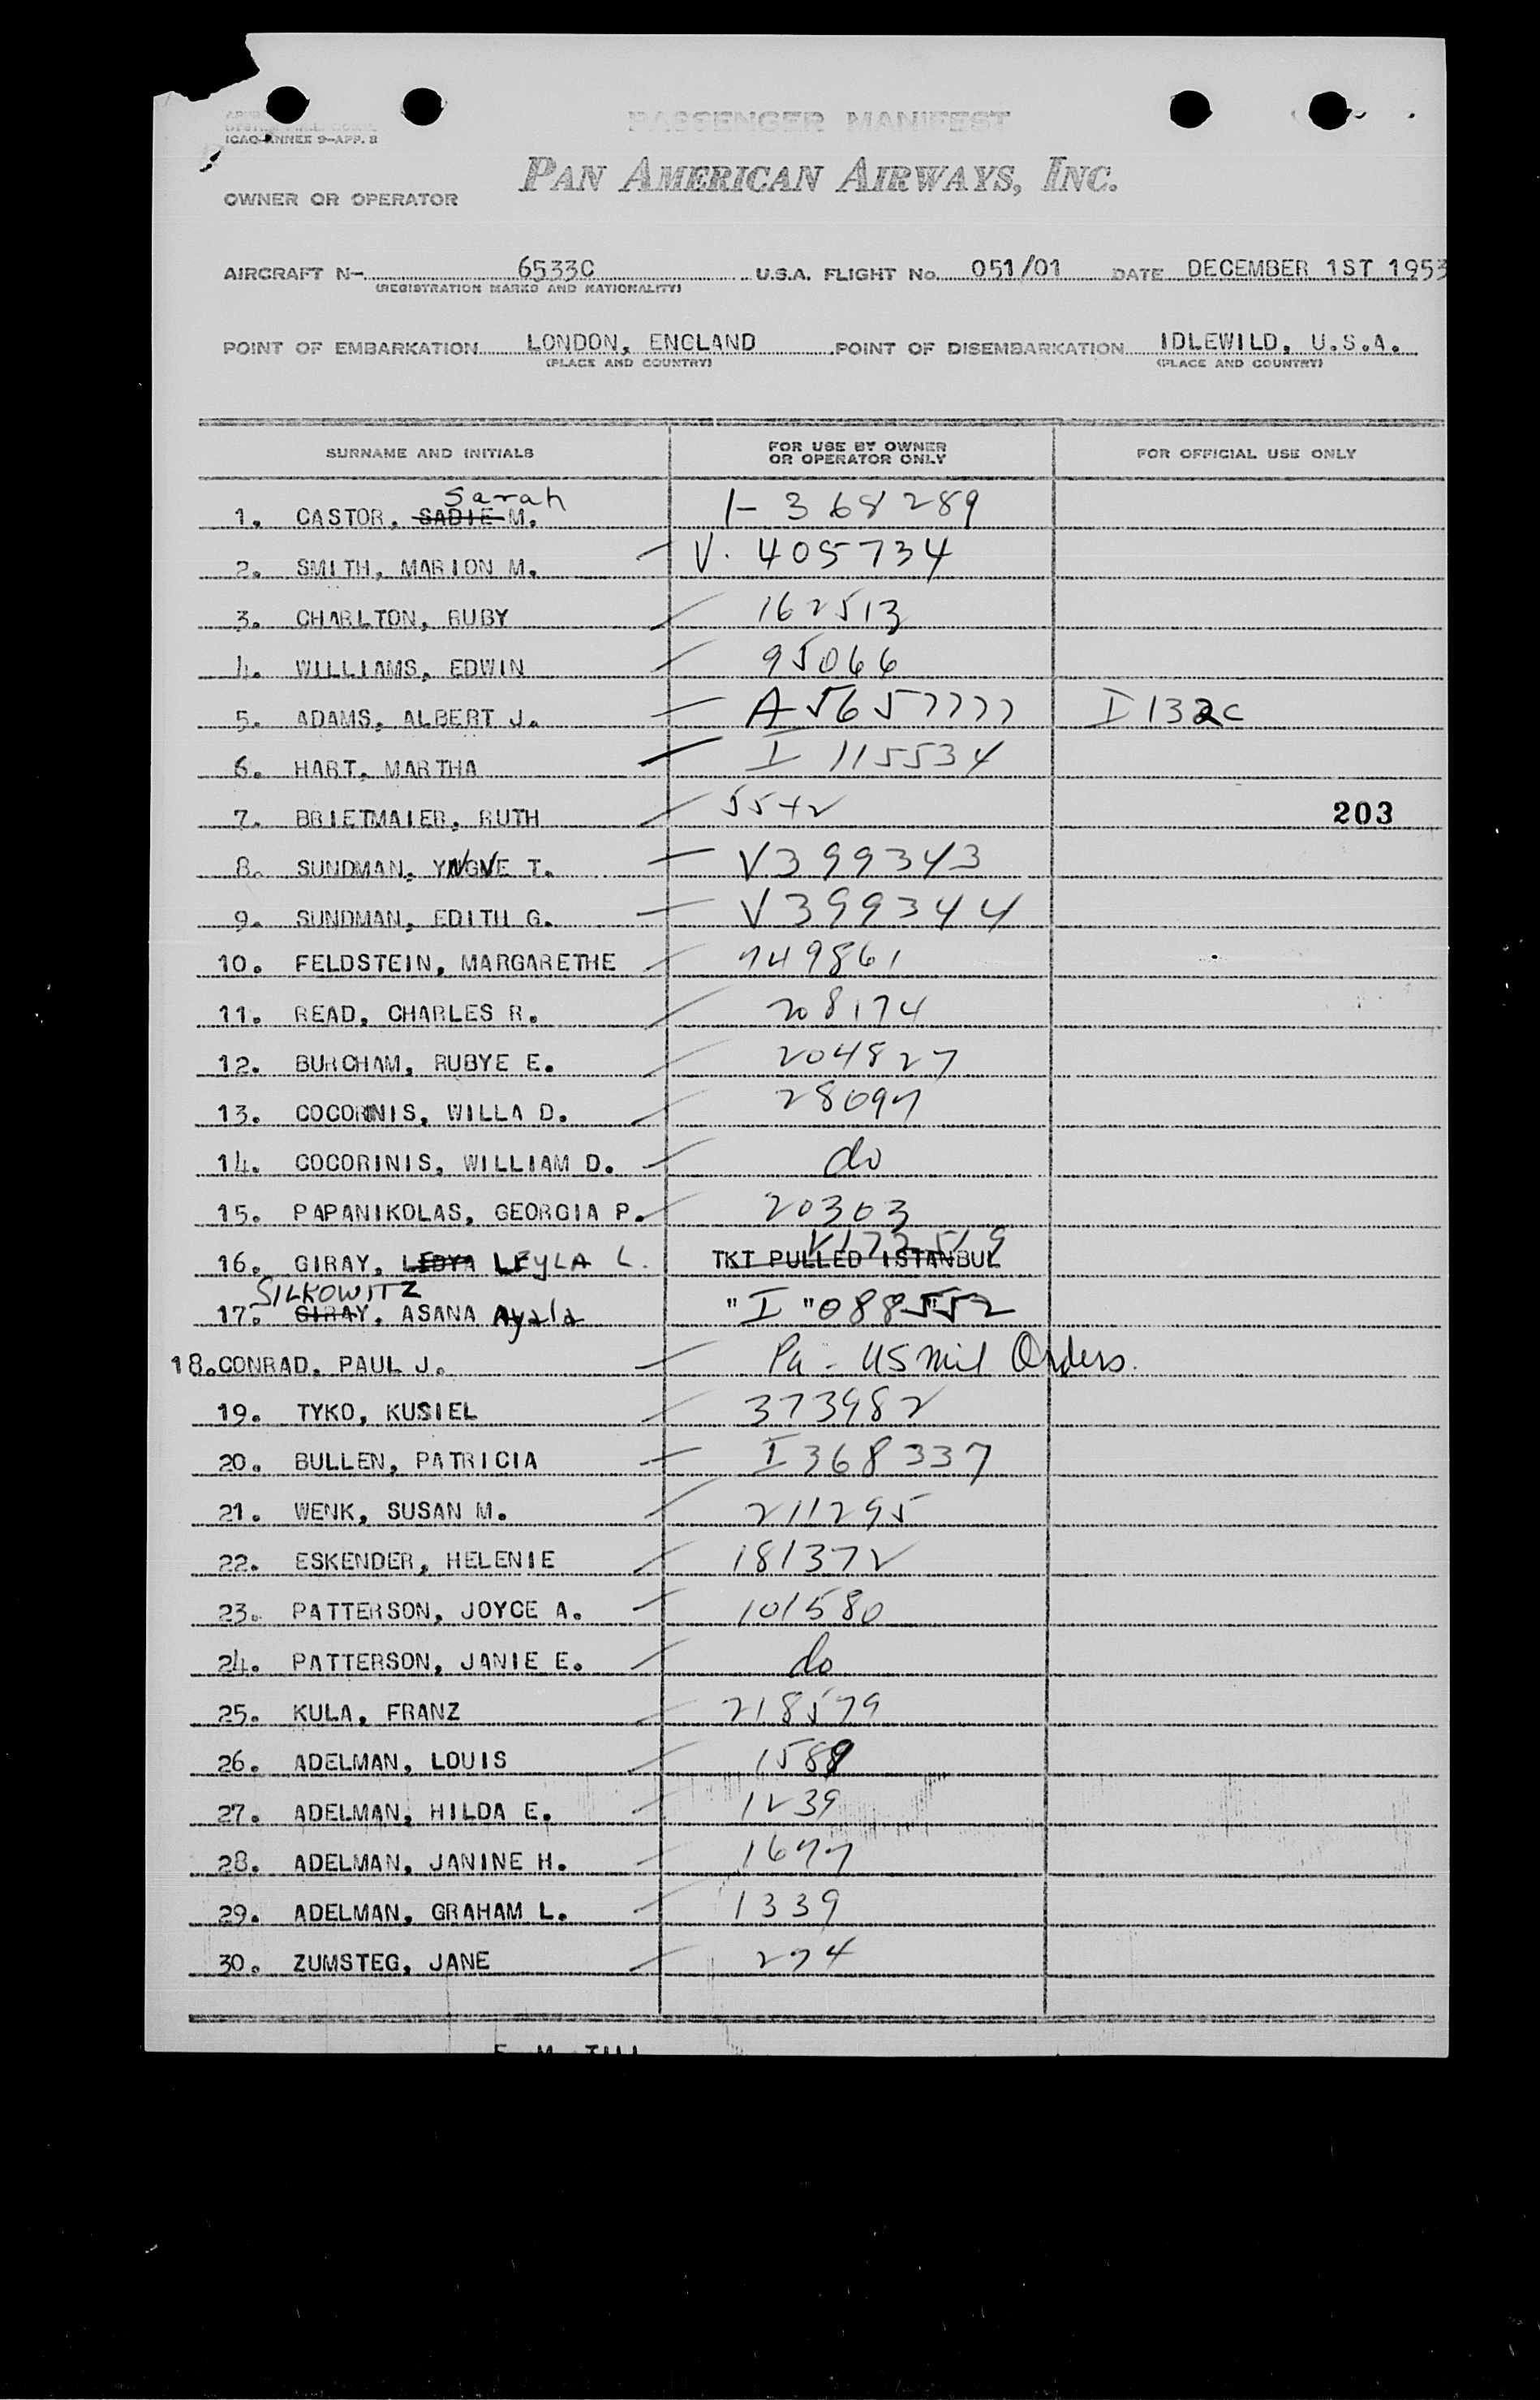 PASSENGER MANIFEST
ICAO-ANNEX 9-APP. 8
PAN AMERICAN AIRWAYS, INC.
OWNER OR OPERATOR
AIRCRAFT N- 6533C U.S.A. FLIGHT No. 051/01 DATE DECEMBER 1ST 1953
(REGISTRATION MARKS AND NATIONALITY)
POINT OF EMBARKATION LONDON, ENGLAND POINT OF DISEMBARKATION IDLEWILD, U.S.A.
(PLACE AND COUNTRY) (PLACE AND COUNTRY)
SURNAME AND INITIALS FOR USE BY OWNER OR OPERATOR ONLY FOR OFFICIAL USE ONLY
Sarah
1. CASTOR, SADIE M. I-368289
2. SMITH, MARION M. V. 405734
3. CHARLTON, RUBY 162513
4. WILLIAMS, EDWIN 95066
5. ADAMS, ALBERT J. A5657777 I 132c
6. HART, MARTHA I 115534
7. BRIETMAIER, RUTH 5542 203
8. SUNDMAN, YNGVE T. V399343
9. SUNDMAN, EDITH G. V399344
10. FELDSTEIN, MARGARETHE 749861
11. READ, CHARLES R. 208174
12. BURCHAM, RUBYE E. 204827
13. COCORINIS, WILLA D. 28097
14. COCORINIS, WILLIAM D. do
15. PAPANIKOLAS, GEORGIA P. 20303
V172519
16. GIRAY, LEDYA LEYLA L. TKT PULLED ISTANBUL
SILKOWITZ
17. GIRAY, ASANA Ayala " I "088552
18. CONRAD, PAUL J. Pa - US Mil Orders.
19. TYKO, KUSIEL 373982
20. BULLEN, PATRICIA I 368337
21. WENK, SUSAN M. 211295
22. ESKENDER, HELENIE 181372
23. PATTERSON, JOYCE A. 101580
24. PATTERSON, JANIE E. do
25. KULA, FRANZ 218579
26. ADELMAN, LOUIS 1589
27. ADELMAN, HILDA E. 1239
28. ADELMAN, JANINE H. 1677
29. ADELMAN, GRAHAM L. 1339
30. ZUMSTEG, JANE 274